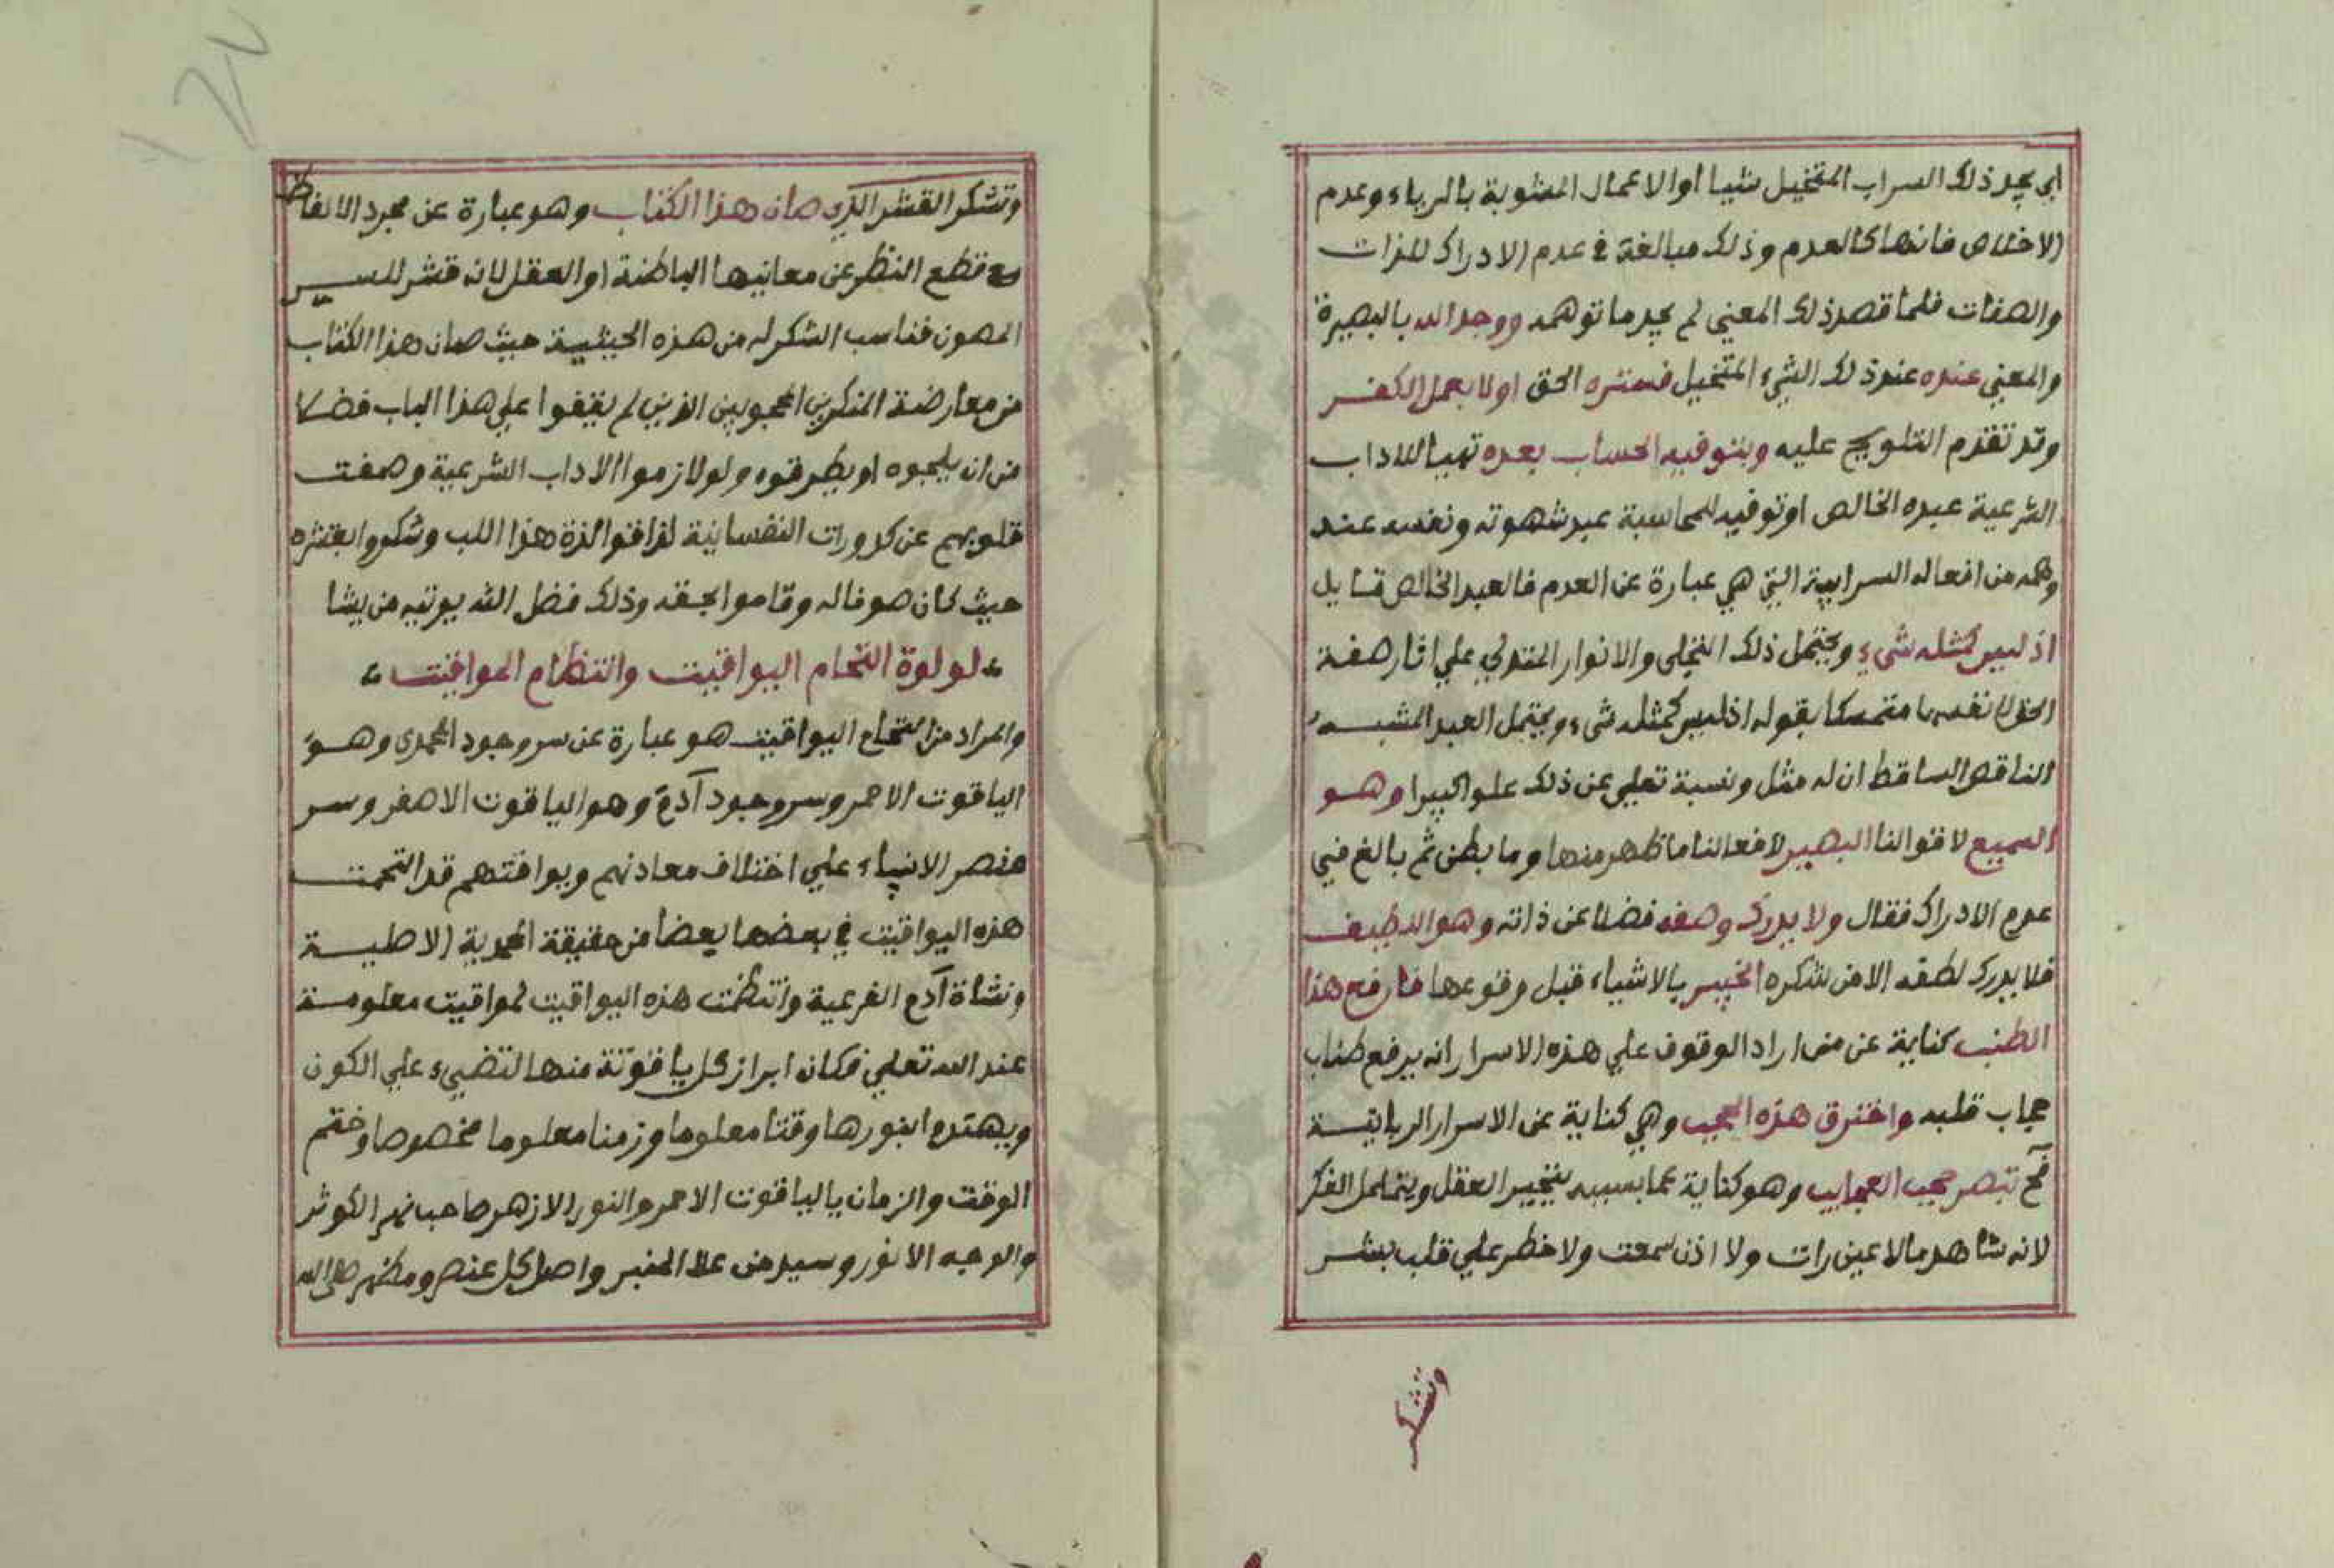 اي يجد ذلك السراب المتخيل شيا او الاعمال المشوبة بالرياء وعدم
الاخلاص فانها كالعدم وذلك مبالغة في عدم الادراك للذات
والصفات فلما قصد ذلك المعني لم يجد ما توهمه ووجد الله بالبصيرة
والمعني عنده عند ذلك الشيء المتخيل فستره الحق اولا بعمل الكفر
وقد تقدم التلويح عليه وبتوفيه الحساب بعده تهيا للاداب
الشرعية عبده الخالص او توفيه للمحاسبة عبد شهوته ونفسه عند
وهمه من افعاله السرابية التي هي عبارة عن العدم فالعبد الخالص قايل
اذ ليس كمثله شيء ويحتمل ذلك التجلي والانوار المتدلي علي اثار صفة
الحق متمسكا بقوله اذ ليس كمثله شيء ويحتمل العبد المشبه
الناقص الساقط ان له مثل ونسبة تعلي عن ذلك علوا كبيرا وهو
السميع لاقوالنا البصير لافعالنا ما ظهر منها وما بطن ثم بالغ في
عدم الادراك فقال ولا يدرك وصفه فضلا عن ذاته وهو اللطيف
فلا يدرك لطفه الا من شكره الخبير بالاشياء قبل وقوعها فارفع هذا
الطنب كناية عن من اراد الوقوف علي هذه الاسرار انه يرفع طناب
حجاب قلبه واخترق هذه الحجب وهي كناية عن الاسرار الربانية
فح تبصر عجب العجايب وهو كناية عما بسببه يتحير العقل ويتململ الفكر
لانه شاهد ما لا عين رات ولا اذن سمعت ولا خطر علي قلب بشر
وتشكر
وتشكر القشر الذي صان هذا الكتاب وهو عبارة عن مجرد الالفاظ
مع قطع النظر عن معانيها الباطنة او العقل لانه قشر للسير
المصون فناسب الشكر له من هذه الحيثية حيث صان هذا الكتاب
من معارضة المنكرين المحجوبين الذين لم يقفوا علي هذا الباب فضلا
من ان يلجوه او يطرقوه ولو لازموا الاداب الشرعية وصفت
قلوبهم عن كدورات النفسانية لذاقوا لذة هذا اللب وشكروا بقشره
حيث كان هو فاله وقاموا بحقه وذلك فضل الله يوتيه من يشا
لولوة التحام اليواقيت وانتظام المواقيت
والمراد من التحام اليواقيت هو عبارة عن سر وجود المحمدي وهو
الياقوت الاحمر وسر وجود آدم وهو الياقوت الاصفر وسر
عنصر الانبياء علي اختلاف معادنهم ويواقتهم قد التحمت
هذه اليواقيت في بعضها بعضا من حقيقة المحمدية الاصلية
ونشاة آدم الفرعية وانتظمت هذه اليواقيت لمواقيت معلومة
عند الله تعلي فكان ابراز كل ياقوتة منها لتضيء علي الكون
ويهتدوا بنورها وقتا معلوما وزمنا معلوما مخصوصا وختم
الوقت والزمان بالياقوت الاحمر والنور الازهر صاحب نهر الكوثر
والوجه الانور وسيد من علا المنبر واصل كل عنصر ومظهر صلى الله